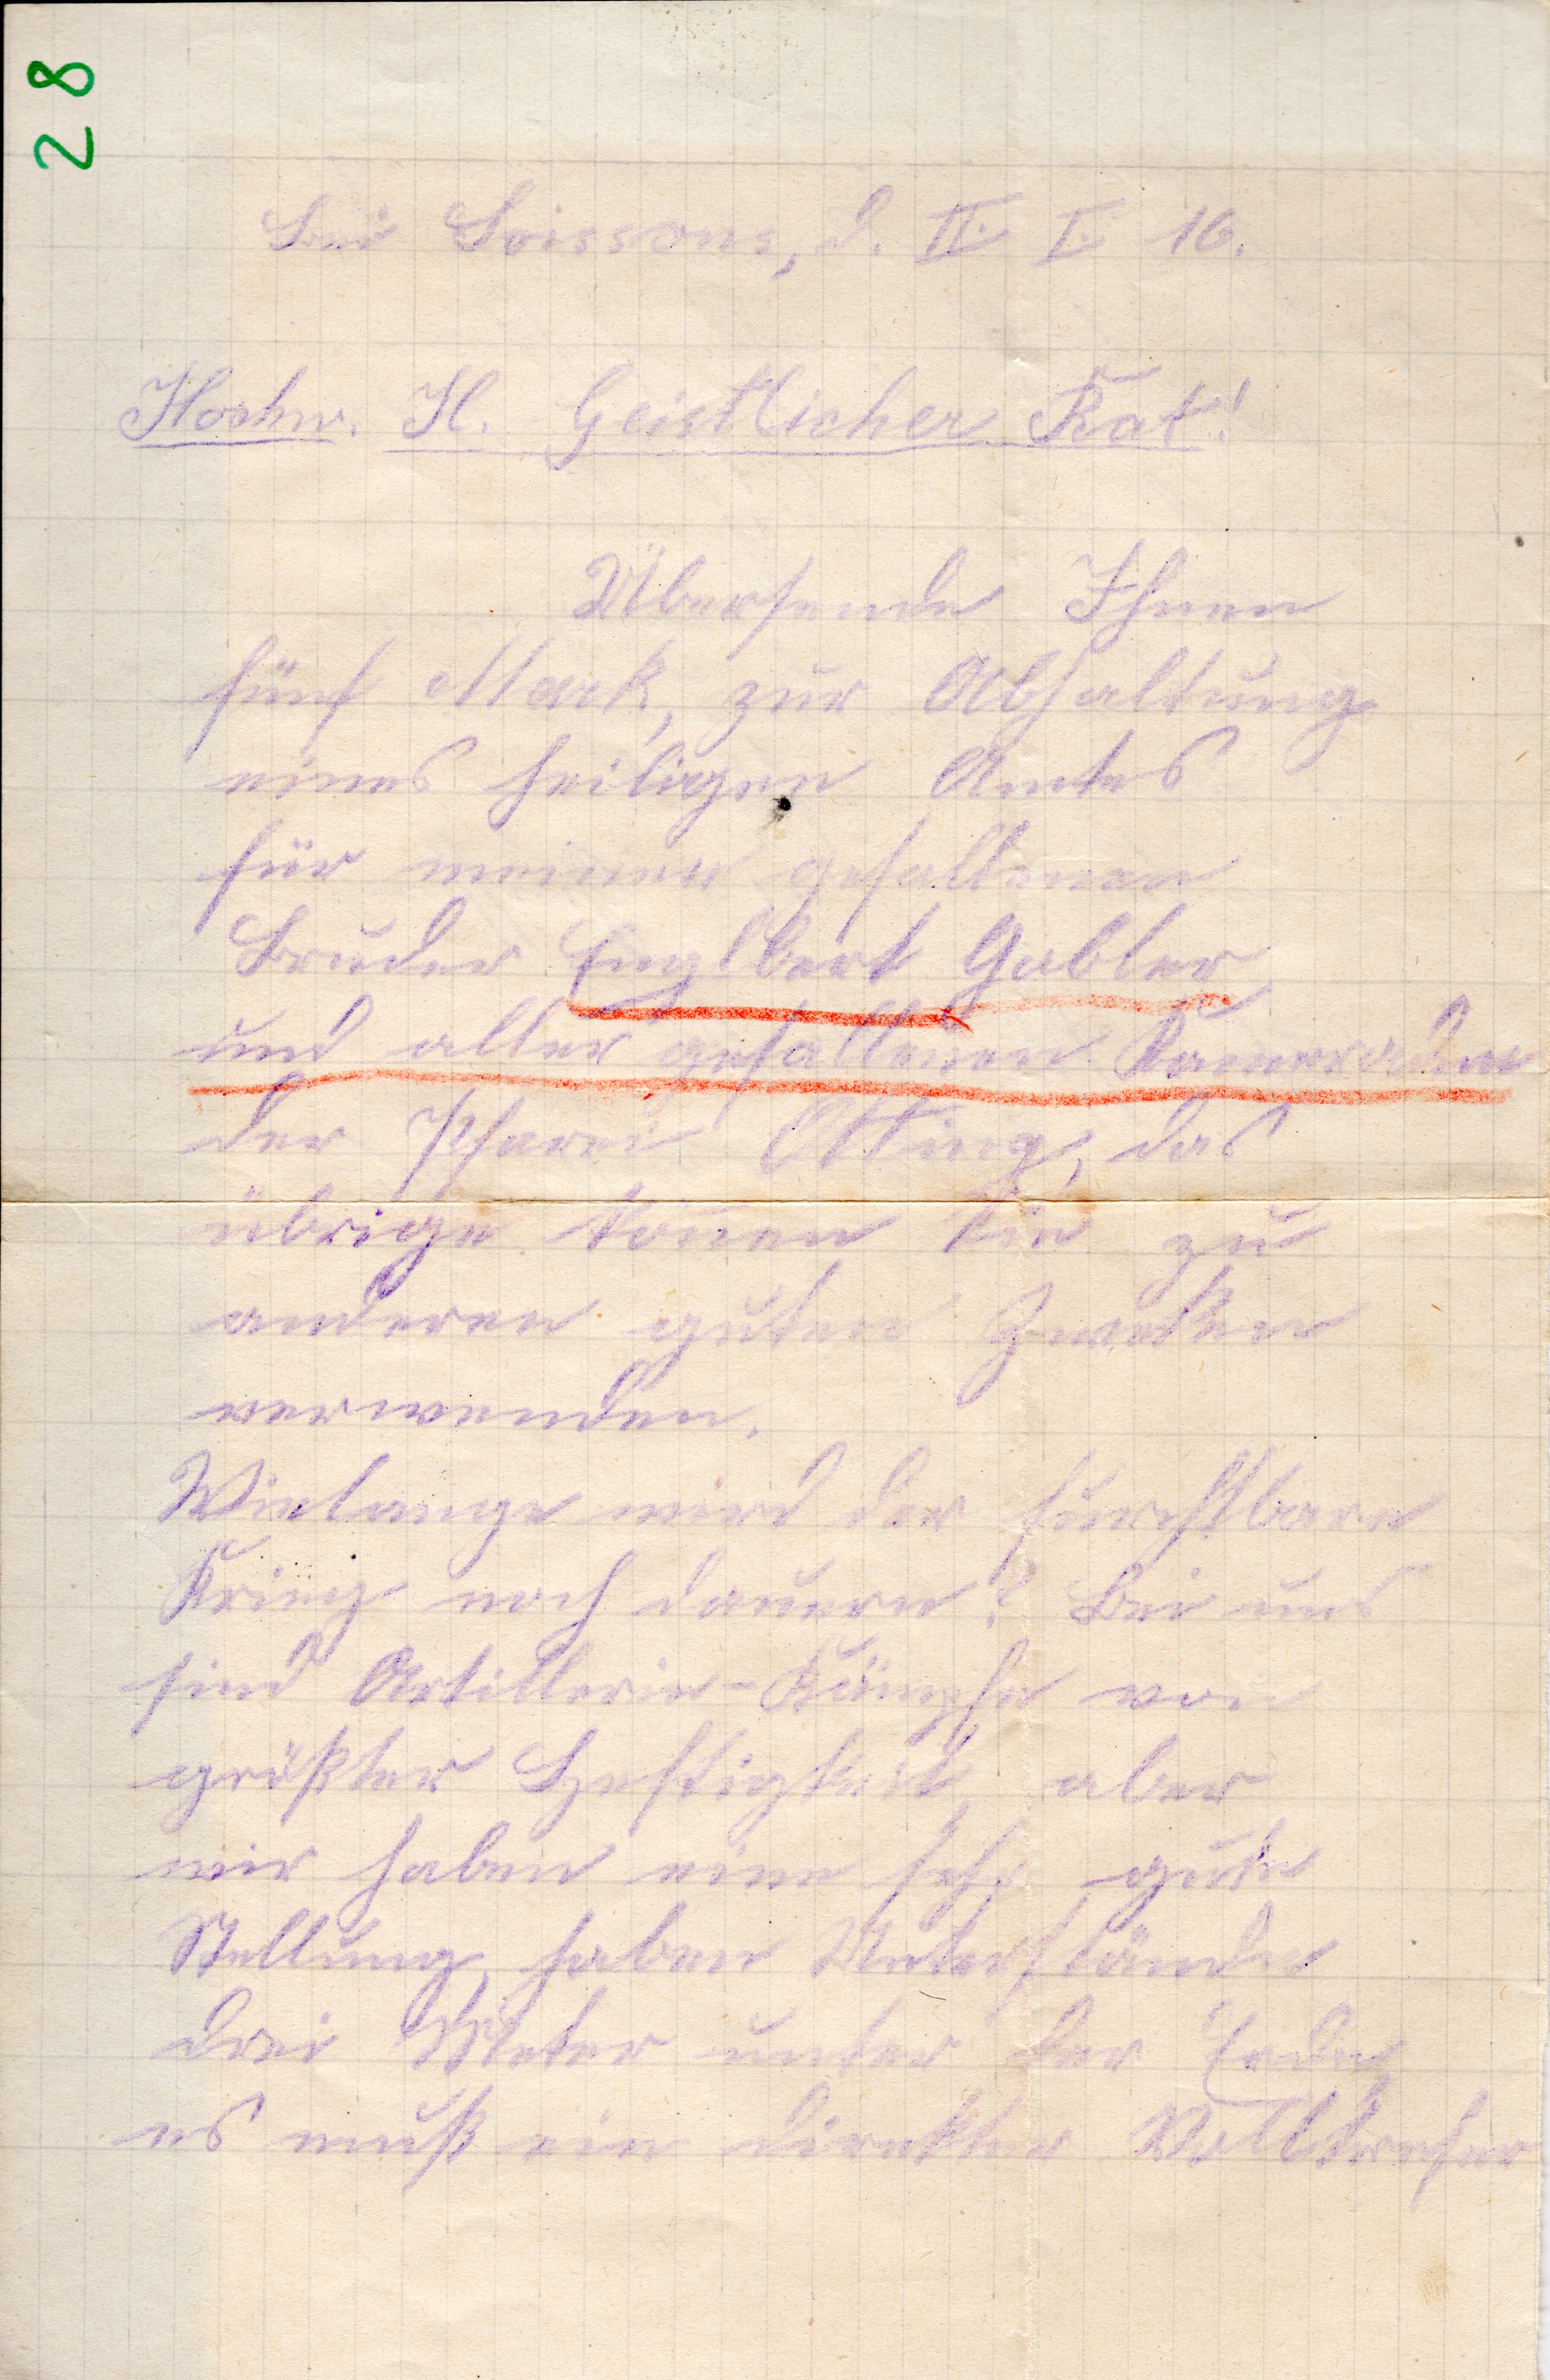 28
Bei Soissons, d. II. I. 16.
Hochw. H. Geistlicher Rat!
Übersende Ihnen
fünf Mark, zur Abhaltung
eines heiligen Amtes
für meinen gefallenen
Bruder Englbert Gabler
und aller gefallenen Kameraden
der Pfarei Otting, das
übrige könen Sie zu
anderen guten Zwecken
verwenden.
Wielange wird der furchtbare
Krieg noch dauern? Bei uns
sind Artillerie-Kämpfe von
größter Heftigkeit, aber
wir haben eine sehr gute
Stellung, haben Unterstände
drei Meter unter der Erde,
es muß ein direkter Volltrefer